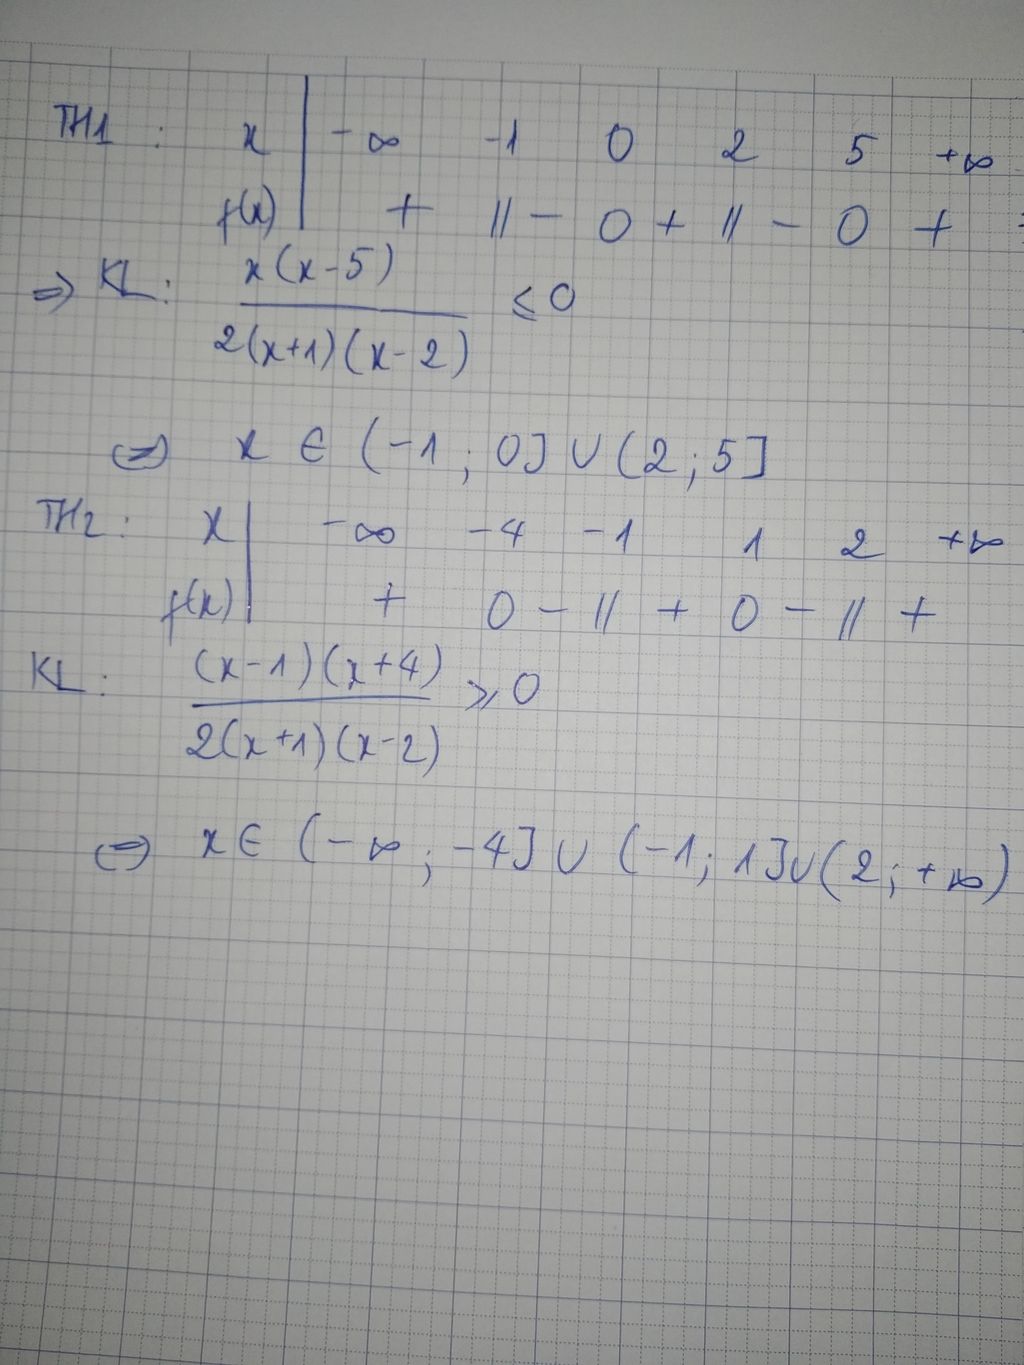 TH1 : x | -∞ -1 0 2 5 +∞
f(x) | + || - 0 + || - 0 +
⇒ KL : x(x-5)
≤ 0
2(x+1)(x-2)
⇔ x ∈ (-1 ; 0] ∪ (2 ; 5]
TH2 : x | -∞ -4 -1 1 2 +∞
f(x) | + 0 - || + 0 - || +
KL : (x-1)(x+4)
≥ 0
2(x+1)(x-2)
⇔ x ∈ (-∞ ; -4] ∪ (-1 ; 1] ∪ (2 ; +∞)